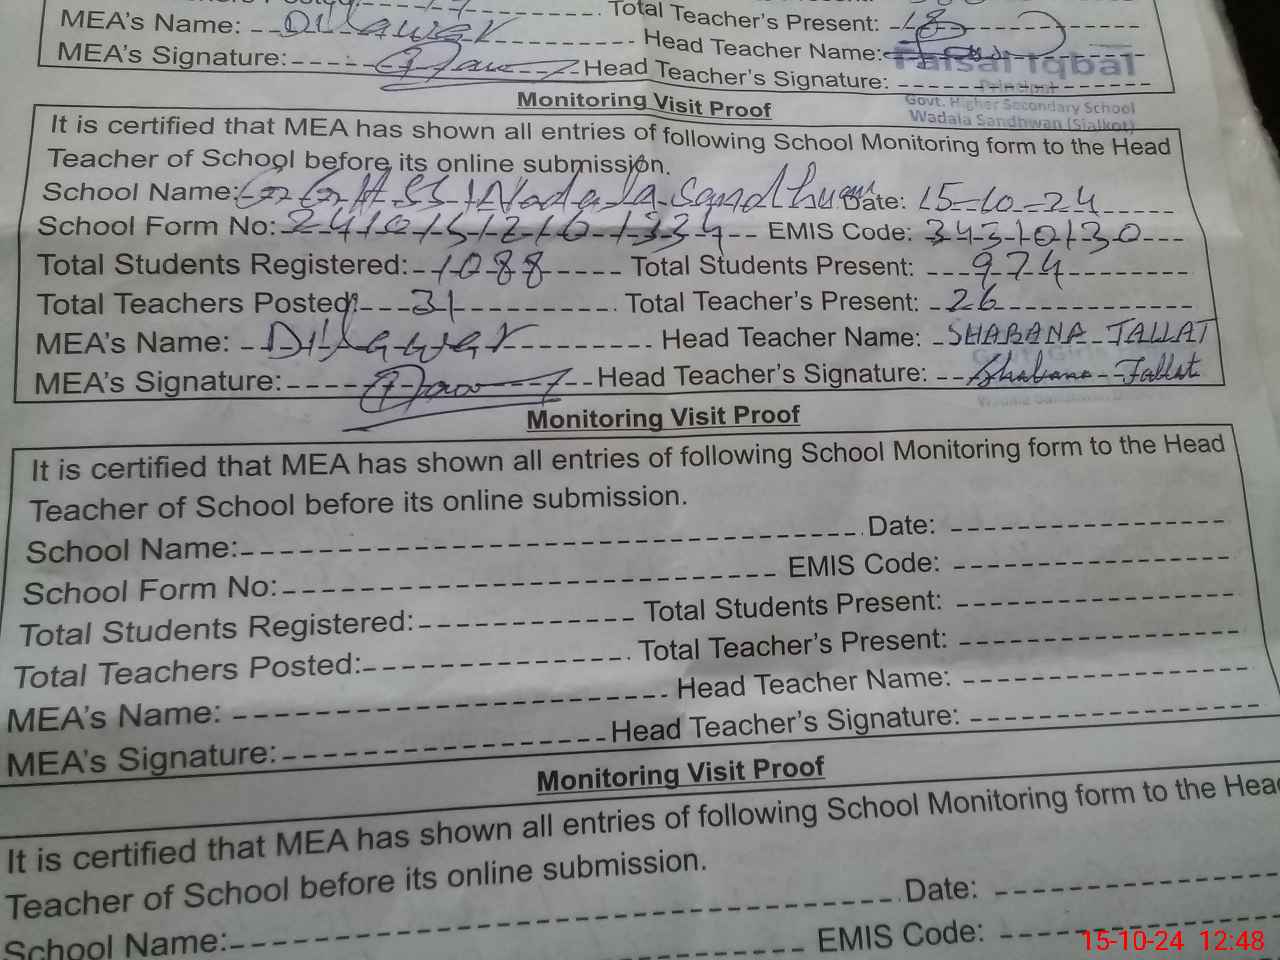 MEA's Name: Dilawer Total Teacher's Present: 18
MEA's Signature: Head Teacher Name:
Head Teacher's Signature:
Faisal Iqbal
Principal
Govt. Higher Secondary School
Wadala Sandhwan (Sialkot)
Monitoring Visit Proof
It is certified that MEA has shown all entries of following School Monitoring form to the Head
Teacher of School before its online submission.
School Name: GGHSS Wadala Sandhwan Date: 15-10-24
School Form No: EMIS Code: 34310130
Total Students Registered: 1088 Total Students Present: 974
Total Teachers Posted: 31 Total Teacher's Present: 26
MEA's Name: Dilawer Head Teacher Name: SHABANA TALLAT
MEA's Signature: Head Teacher's Signature: Shabana Tallat
Monitoring Visit Proof
It is certified that MEA has shown all entries of following School Monitoring form to the Head
Teacher of School before its online submission.
School Name: Date:
School Form No: EMIS Code:
Total Students Registered: Total Students Present:
Total Teachers Posted: Total Teacher's Present:
MEA's Name: Head Teacher Name:
MEA's Signature: Head Teacher's Signature:
Monitoring Visit Proof
It is certified that MEA has shown all entries of following School Monitoring form to the Head
Teacher of School before its online submission.
School Name: Date:
EMIS Code:
15-10-24 12:48